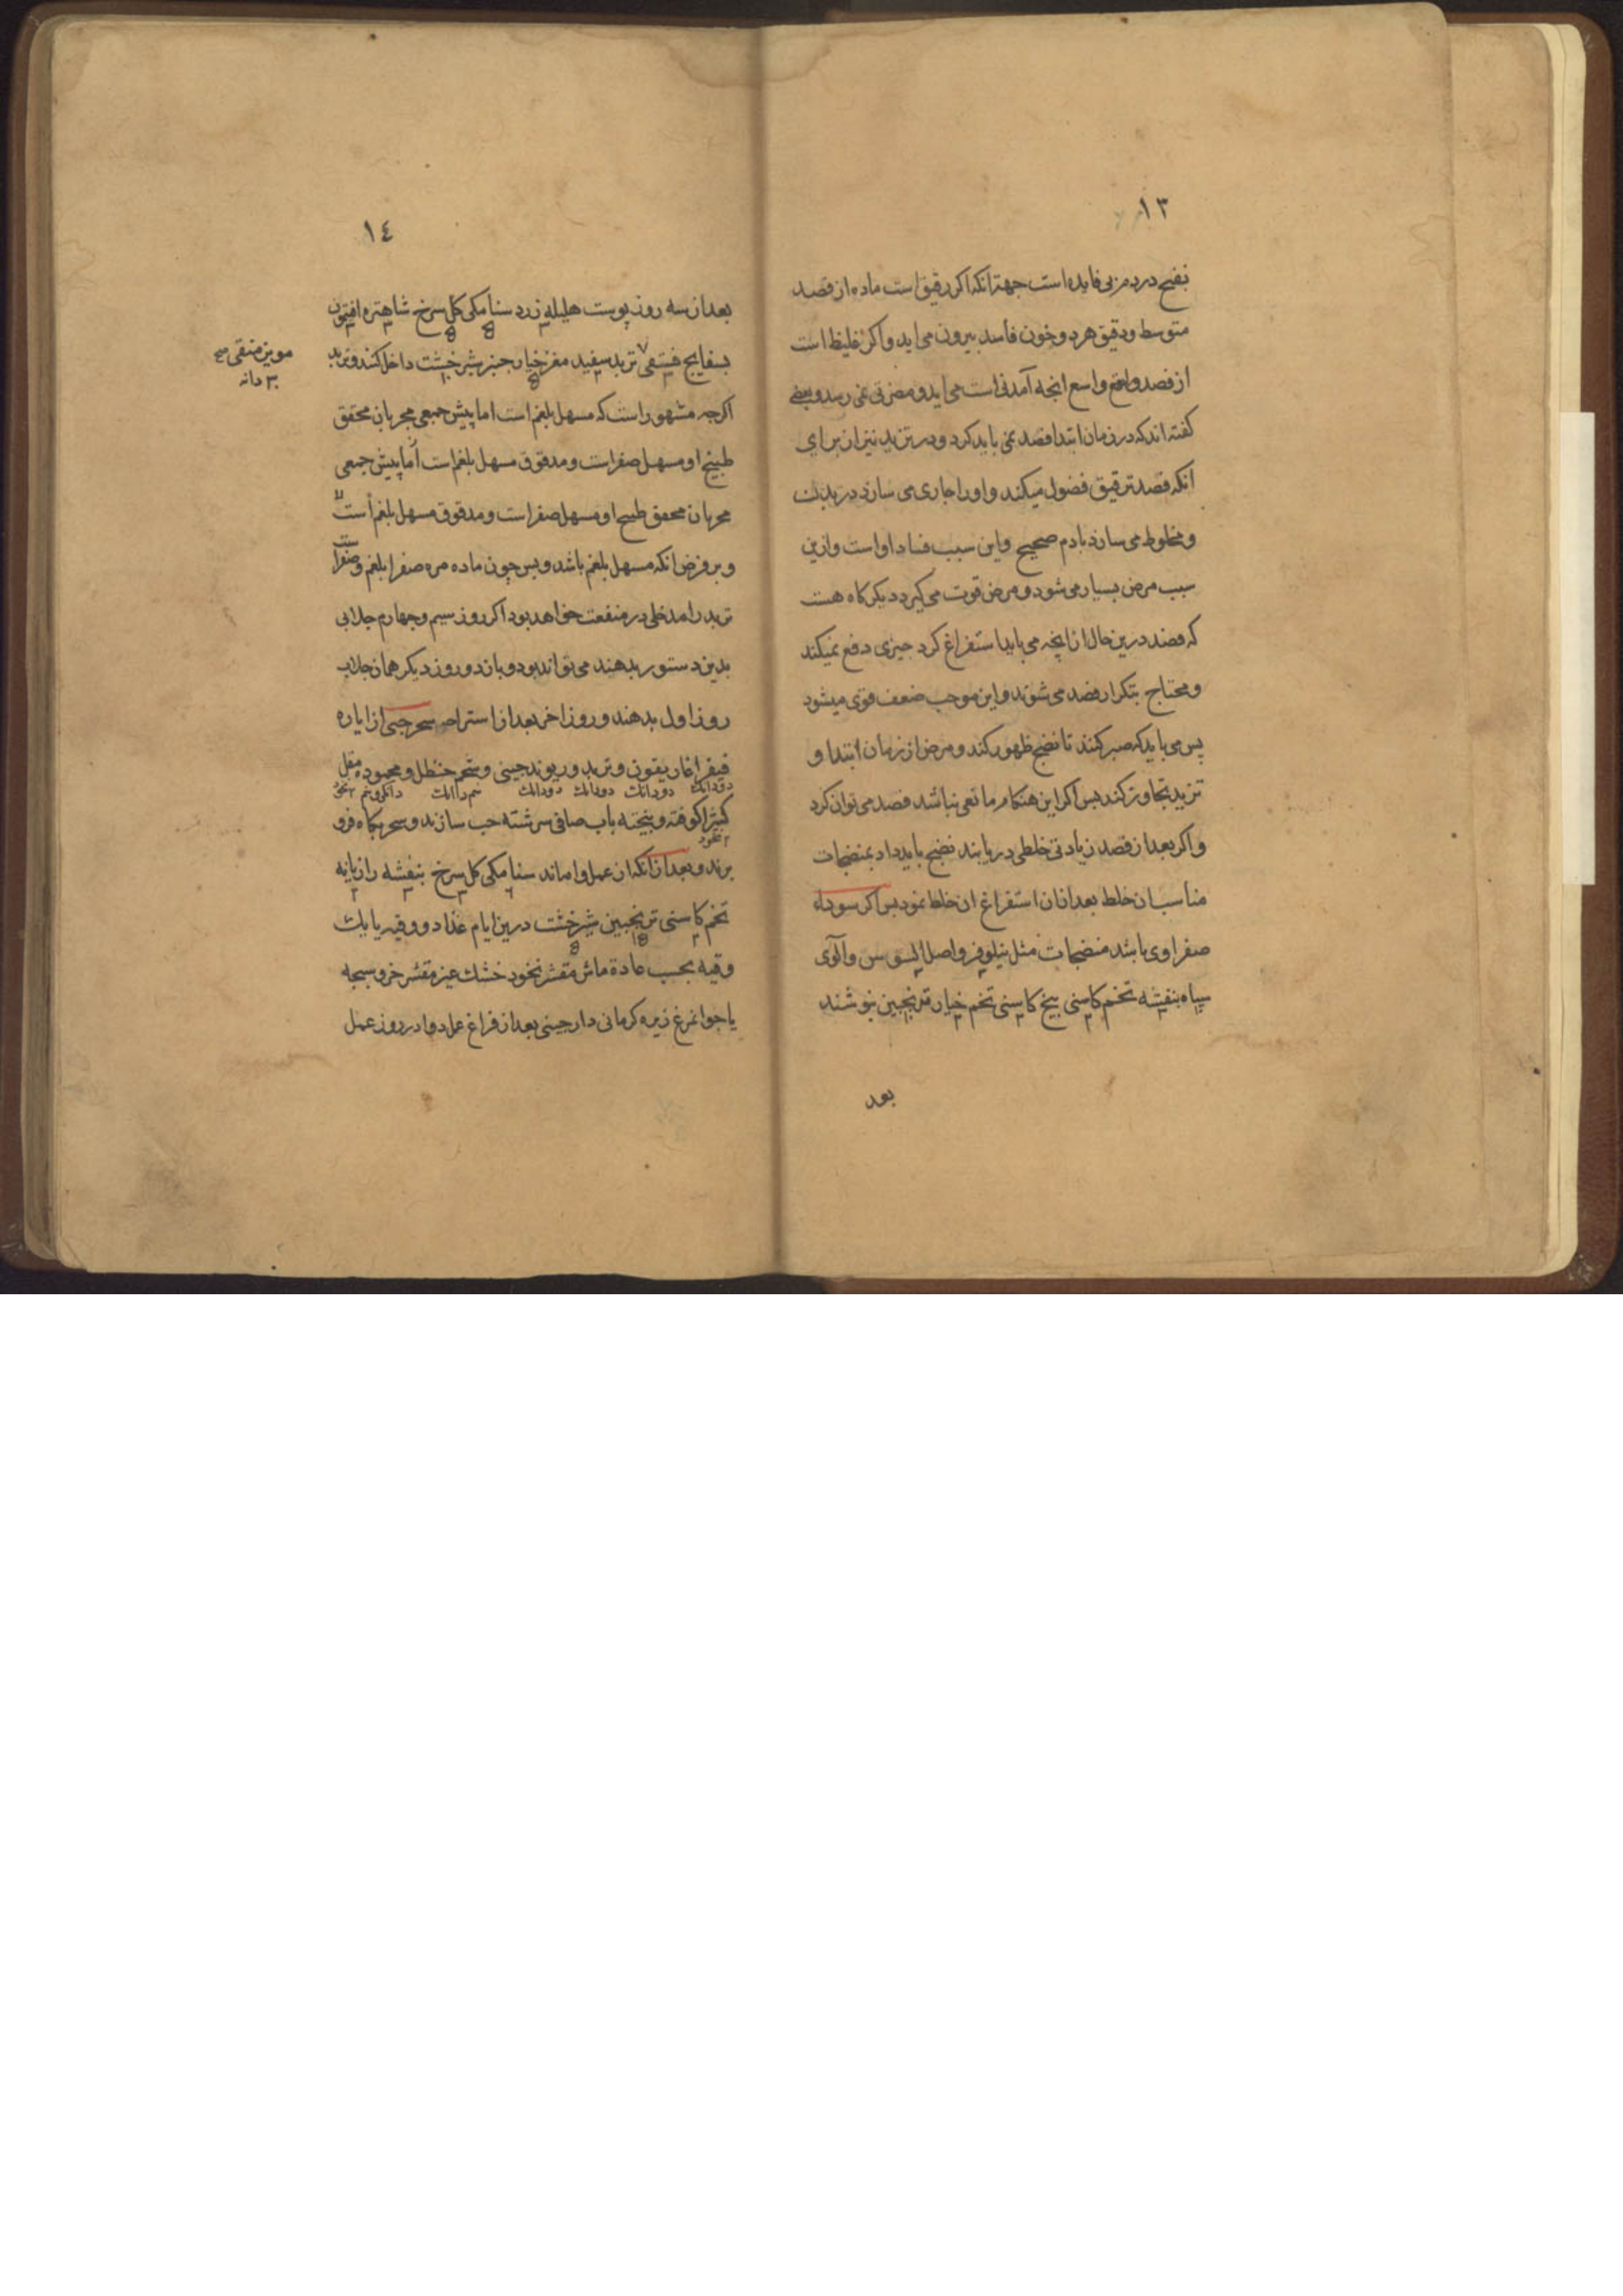 ١٣
نضج در دم بی فایده است جهة انکه اکر رقیق است ماده از فصد
متوسط و دقیق هر دو خون فاسد بیرون می اید و اکر غلیظ است
از فصد واسع انجه آمدنی است می اید و مضرتی نمی رسد و بعضی
کفته اند که در زمان ابتدا فصد نمی باید کرد و در تزید نیز از برای
انکه فصد ترقیق فضول میکند و اورا جاری می سازد در بدن
و مخلوط می سازد بادم صحیح و این سبب فساد او است و ازین
سبب مرض بسیار می شود و مرض قوت می کیرد دیکر کاه هست
که فصد درین حال از انچه می باید استفراغ کرد جیزی دفع نمیکند
و محتاج بتکرار فصد می شوند و این موجب ضعف قوی میشود
پس می باید که صبر کنند تا نضج ظهور کند و مرض از زمان ابتدا و
تزید تجاوز کند پس اکر این هنکام مانعی نباشد فصد می توان کرد
و اکر بعد از فصد زیادتی خلطی دریابند نضج باید داد بمنضجات
مناسب ان خلط بعد ازان استفراغ ان خلط نمود پس اکر سوداء
صفراوی باشد منضجات مثل نیلوفر و اصل السوس و آلوی
سیاه بنفشه تخم کاسنی بیخ کاسنی تخم خیار ترنجبین بنوشند
بعد
١٤
بعد از سه روز پوست هلیله زرد سنا مکی کل سرخ شاهتره افتیمون
بسفایج فستقی تربد سفید مغز خیار جنبر شیر خشت داخل کنند و تربد
مویز منقی
٣٠ دانه
اکرجه مشهور است که مسهل بلغم است اما پیش جمعی مجربان محقق
طبیخ او مسهل صفراست و مدقوق مسهل بلغم است اما پیش جمعی
مجربان محقق طبیخ او مسهل صفراست و مدقوق مسهل بلغم است
و بر فرض انکه مسهل بلغم باشد و بس چون ماده مره صفرا بلغم و صفرا
تربد را مدخلی در منفعت خواهد بود اکر روز سیم و جهارم جلابی
بدین دستور بدهند می تواند بود و باز دو روز دیکر همان جلاب
روز اول بدهند و روز اخر بعد از استراحه سحر حبی از ایاره
فیقرا غاریقون و تربد و ریوند جینی و شحم حنظل و محموده مقل
دودانک دودانک دودانک دودانک نیم دانک دانکی و نیم ٢ نخود
کتیرا کوفته و بیخته باب صافی سرشته حب سازند و سحر بکاه فرو
٢ نخود
برند و بعد از انکه ان عمل واماند سنا مکی کل سرخ بنفشه رازیانه
تخم کاسنی ترنجبین شیر خشت درین ایام غذا دو وقیه یا یک
وقیه بحسب عادة ماش مقشر نخود خشک غیر مقشر خروسبجه
یا جوانمرغ زیره کرمانی دارجینی بعد از فراغ عمل دوا در روز عمل